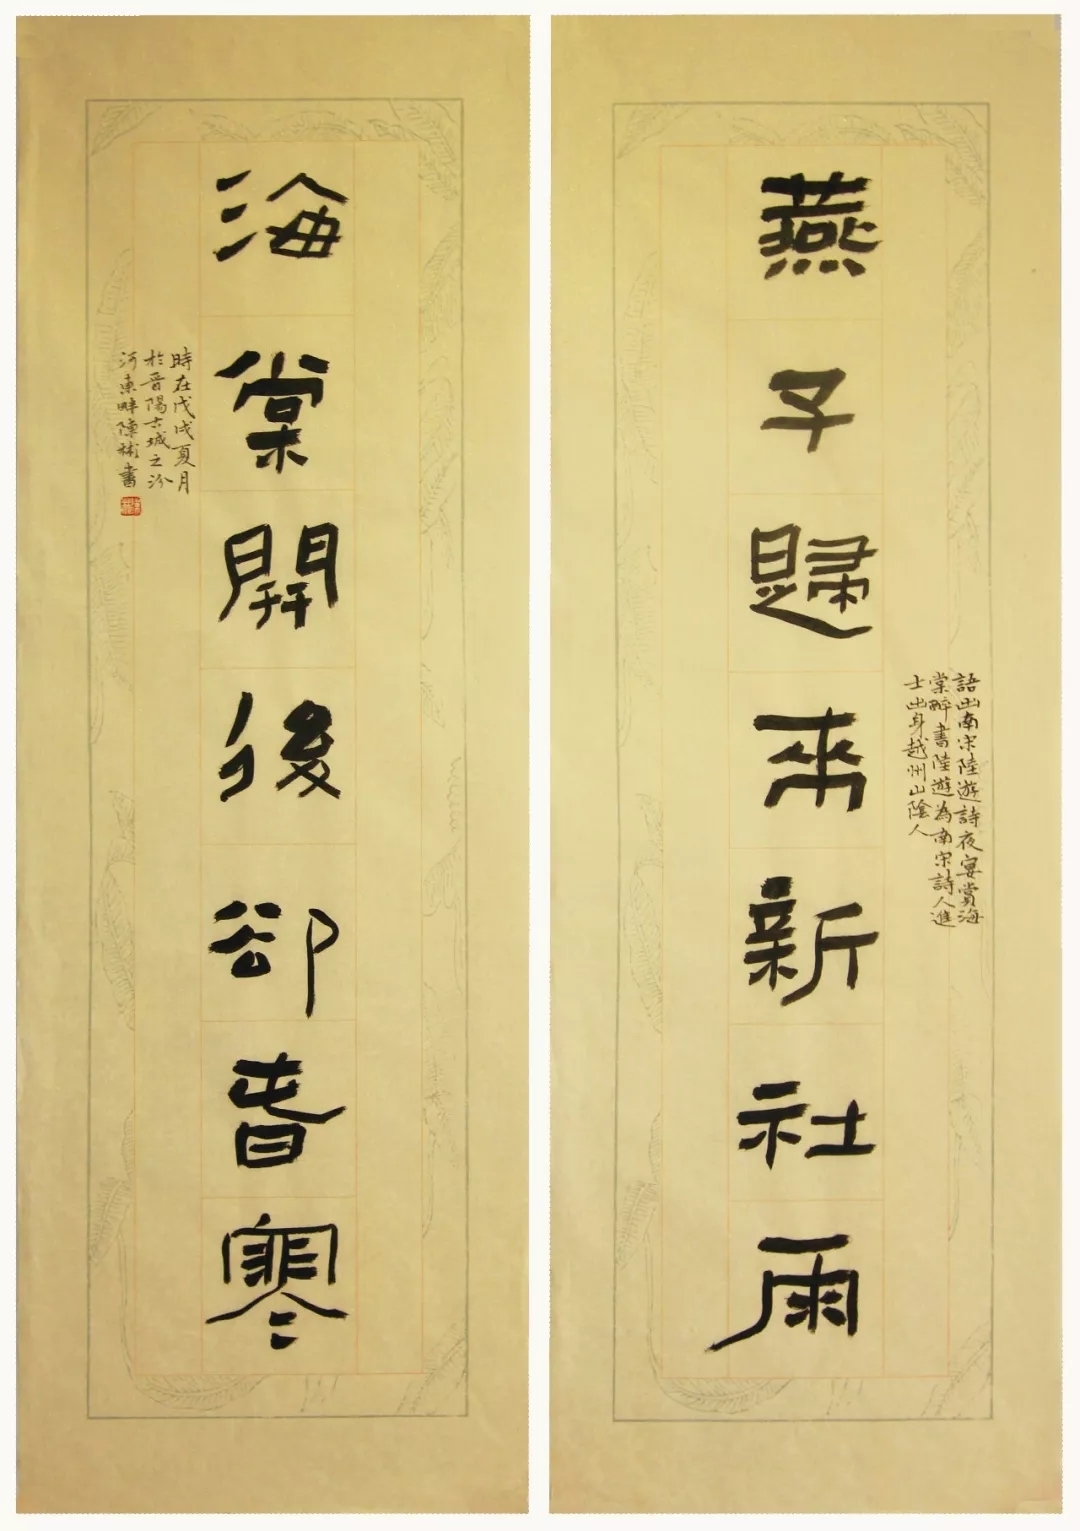 燕子歸來新社雨
語出南宋陸遊詩夜宴賞海
棠醉書陸遊為南宋詩人進
士出身越州山陰人
海棠開後却春寒
時在戊戌夏月
於晉陽古城之汾
河東畔陳彬書